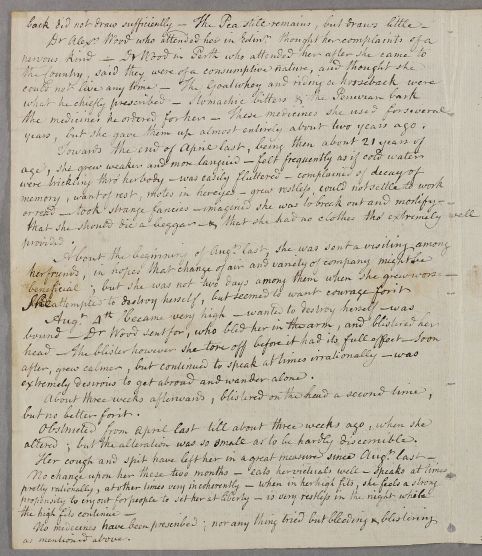 back did not draw sufficiently – The Pea still remains, but draws little –
Dr Alexr. Wood who attended her in Edinr. thought her complaints of a
nervous kind – Dr Wood in Perth who attended her after she came to
the Country, said they were of a consumptive nature, and thought she
could not live any time – The Goatwhey and riding a horseback were
what he chiefly prescribed – Stomachic bitters & the Peruvian bark
the medicines he ordered for her – These medicines she used for several
years, but she gave them up almost entirely about two years ago.
Towards the end of April last, being then about 21 years of
age, she grew weaker and more languid – felt frequently as if cold water
were trickling thro' her body – was easily fluttered – complained of decay of
memory, want of rest, in her head – grew restless, could not settle to work
or read – took strange fancies – imagined she was to break out and mortify –
that she should die a beggar – & that she had no clothes tho' extremely well
provided.
About the beginning of Augt. last, she was sent a visiting among
her friends, in hopes that change of air and variety of company might be
beneficial; but she was not two days among them when she grew worse –
She attempted to destroy herself, but seemed to want courage for it
Augt. 4th became very high – wanted to destroy herself – was
bound – Dr Wood sent for, who bled her in the arm, and blistered her
head – The blister however she tore off before it had its full effect – Soon
after, grew calmer, but continued to speak at times irrationally – was
extremely desirous to get abroad and wander alone.
About three weeks afterwards, blistered on the head a second time,
but no better for it.
Obstructed from April last till about three weeks ago, when she
altered; but the alteration was so small as to be hardly discernible.
Her cough and spit have left her in a great measure since Augt. last –
No change upon her these two months – Eats her victuals well – Speaks at times
pretty rationally, at other times very incoherently – when in her high fits, she feels a strong
propensity to cry out for people to set her at liberty – is very restless in the night while
the high fits continue –
No medicines have been prescribed; nor any thing tried but bleeding & blistering
as mentioned above.